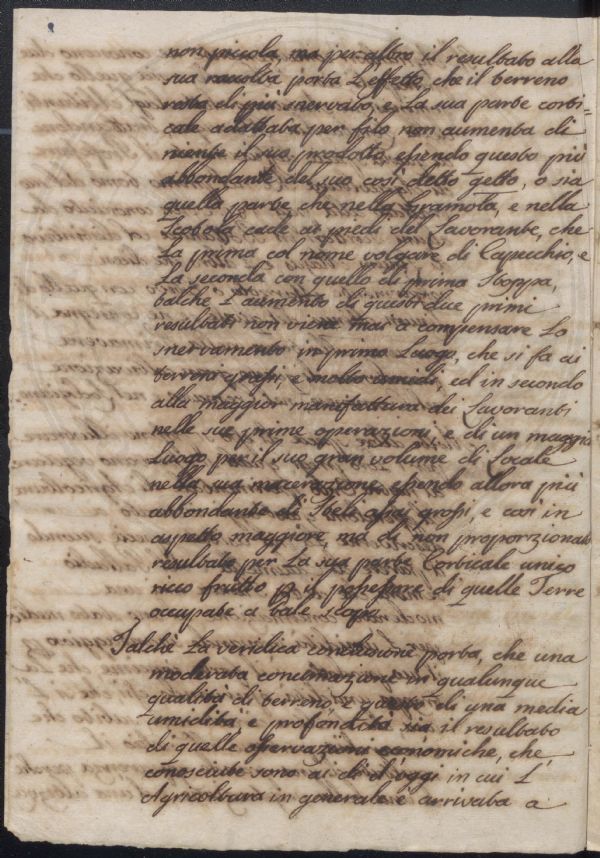 non piccola, ma per altro il resultato alla
sua raccolta porta l'effetto, che il terreno
resta di più snervato, e la sua parte corti=
cale adattata per filo non aumenta di
niente il suo prodotto, essendo questo più
abbondante del suo così detto getto, o sia
quella parte che nella Gramola, e nella
Scotola cade ai piedi del Lavorante, che
la prima col nome volgare di Capecchio, e
la seconda con quello di prima Stoppa,
talchè l'aumento di questi due primi
resultati non viene mai a compensare lo
snervamento in primo luogo, che si fa ai
terreni grassi, e molto umidi, ed in secondo
alla maggior manifattura dei Lavoranti
nelle sue prime operazioni, e di un maggior
Luogo per il suo gran volume di Locale
nella sua macerazione, essendo allora più
abbondante di Steli assai grossi, e così in
aspetto maggiore, ma di non proporzionato
resultato per la sua parte Corticale unico
ricco frutto p il possessore di quelle Terre
occupate a tale scopo.
Talchè la veridica conclusione porta, che una
moderata concimazione in qualunque
qualità di terreno e questo di una media
umidità, e profondità sia il resultato
di quelle osservazioni economiche, che
conosciute sono ai dì d'oggi in cui l'
Agricoltura in generale è arrivata a